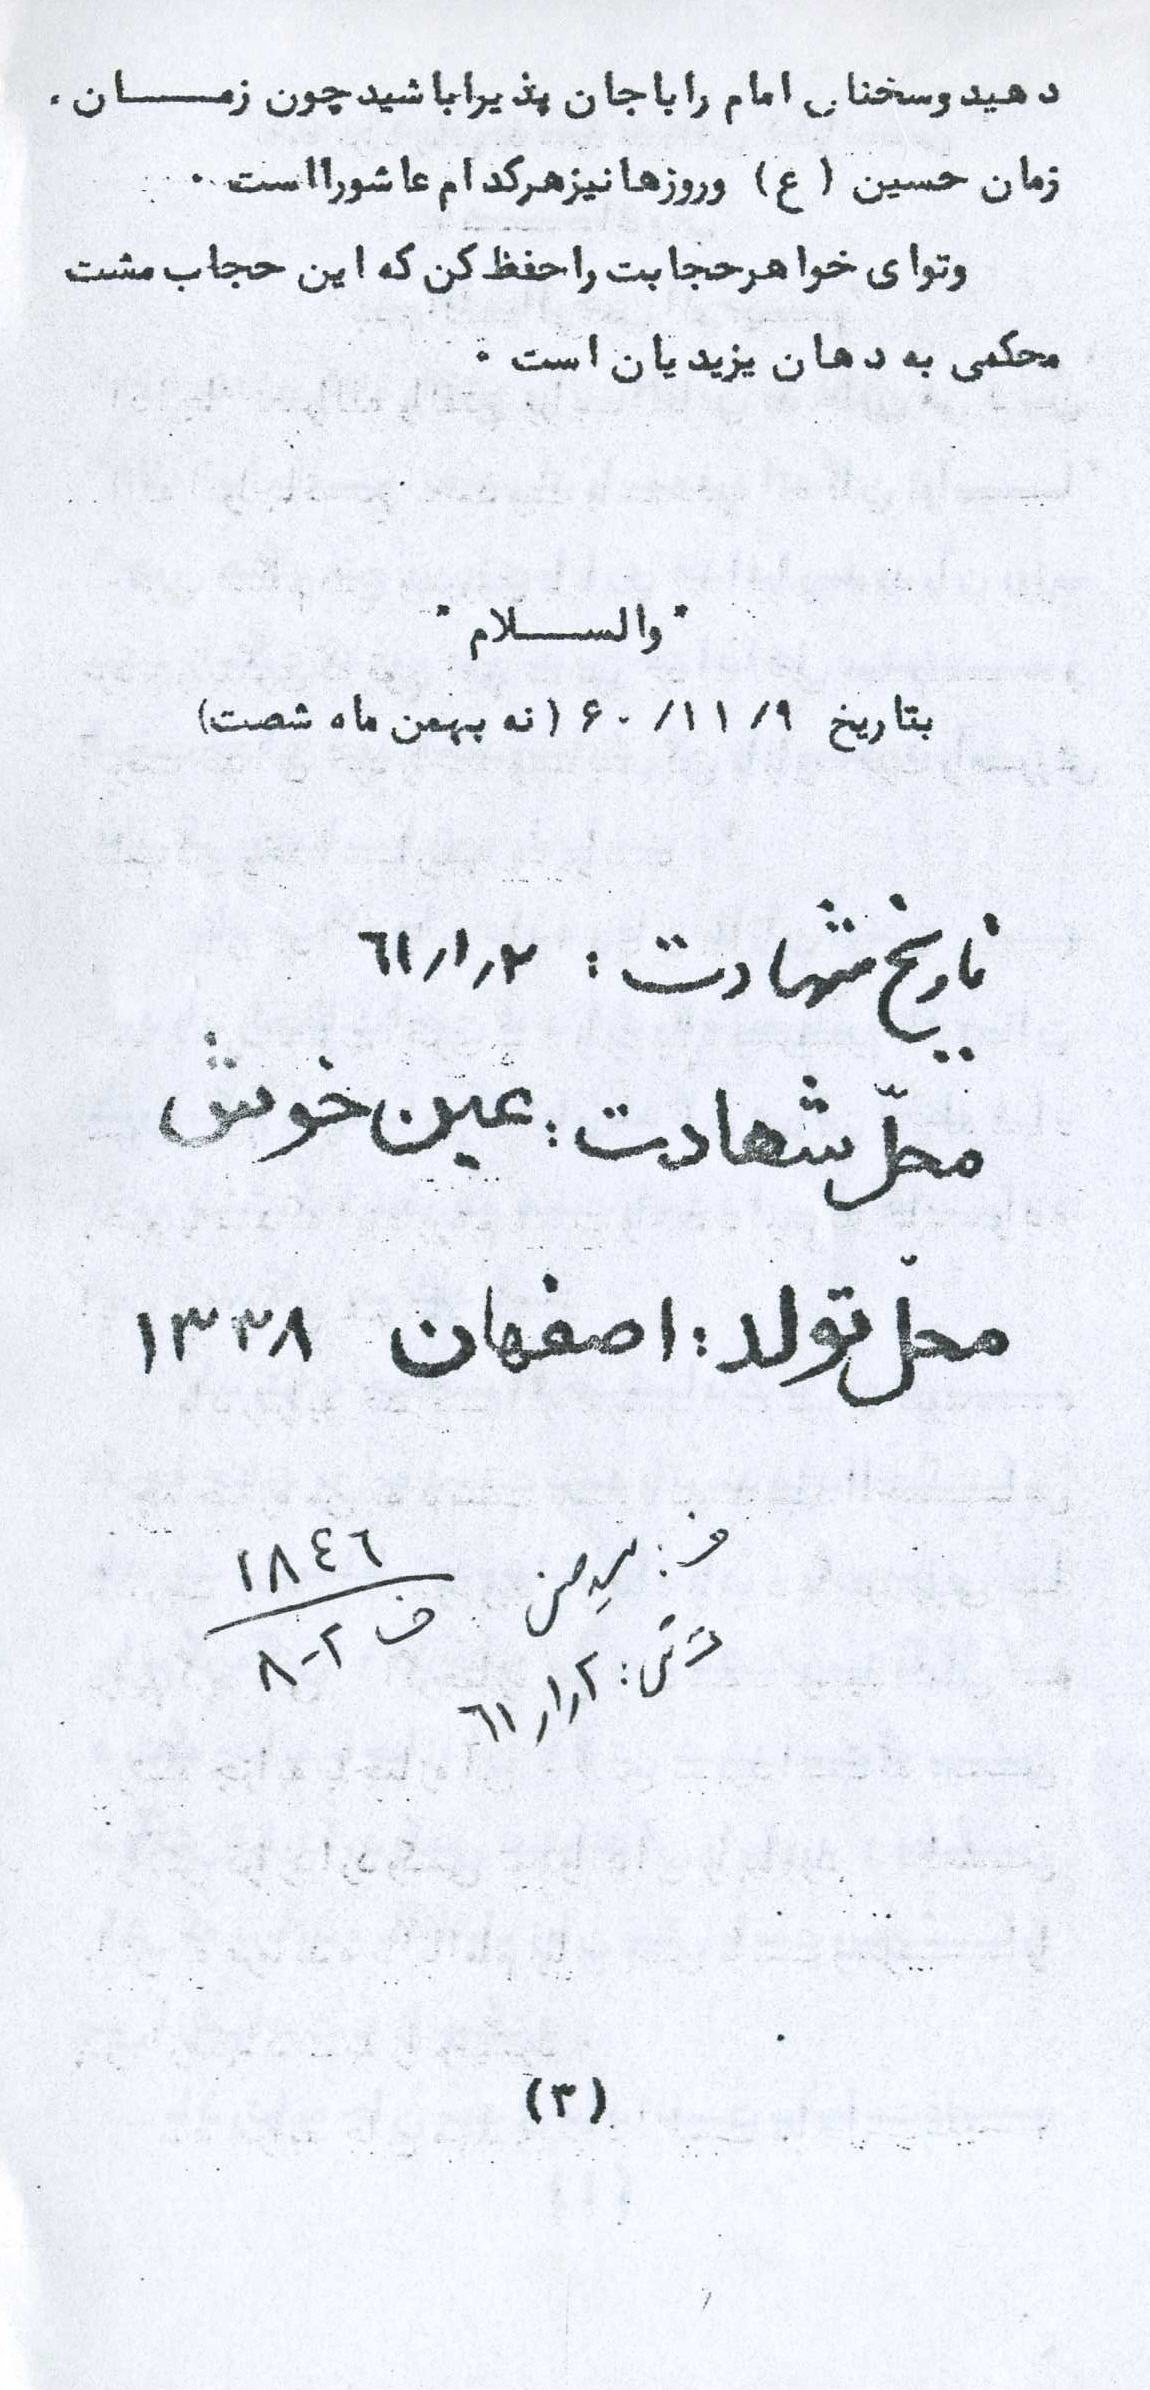 دهید وسخنان امام را با جان پذیرا باشید چون زمـــان ،
زمان حسین (ع) وروزها نیز هرکدام عاشورا است .
وتوای خواهر حجابت را حفظ کن که این حجاب مشت
محکمی به دهان یزیدیان است .
" والســـلام "
بتاریخ ۶۰/۱۱/۹ (نه بهمن ماه شصت)
تاریخ شهادت : ٦١٫١٫٢
محلّ شهادت : عین خوش
محلّ تولد : اصفهان ١٣٣٨
١٨٤٦
ف ٢-٨
٦١٫١٫٢
(۳)